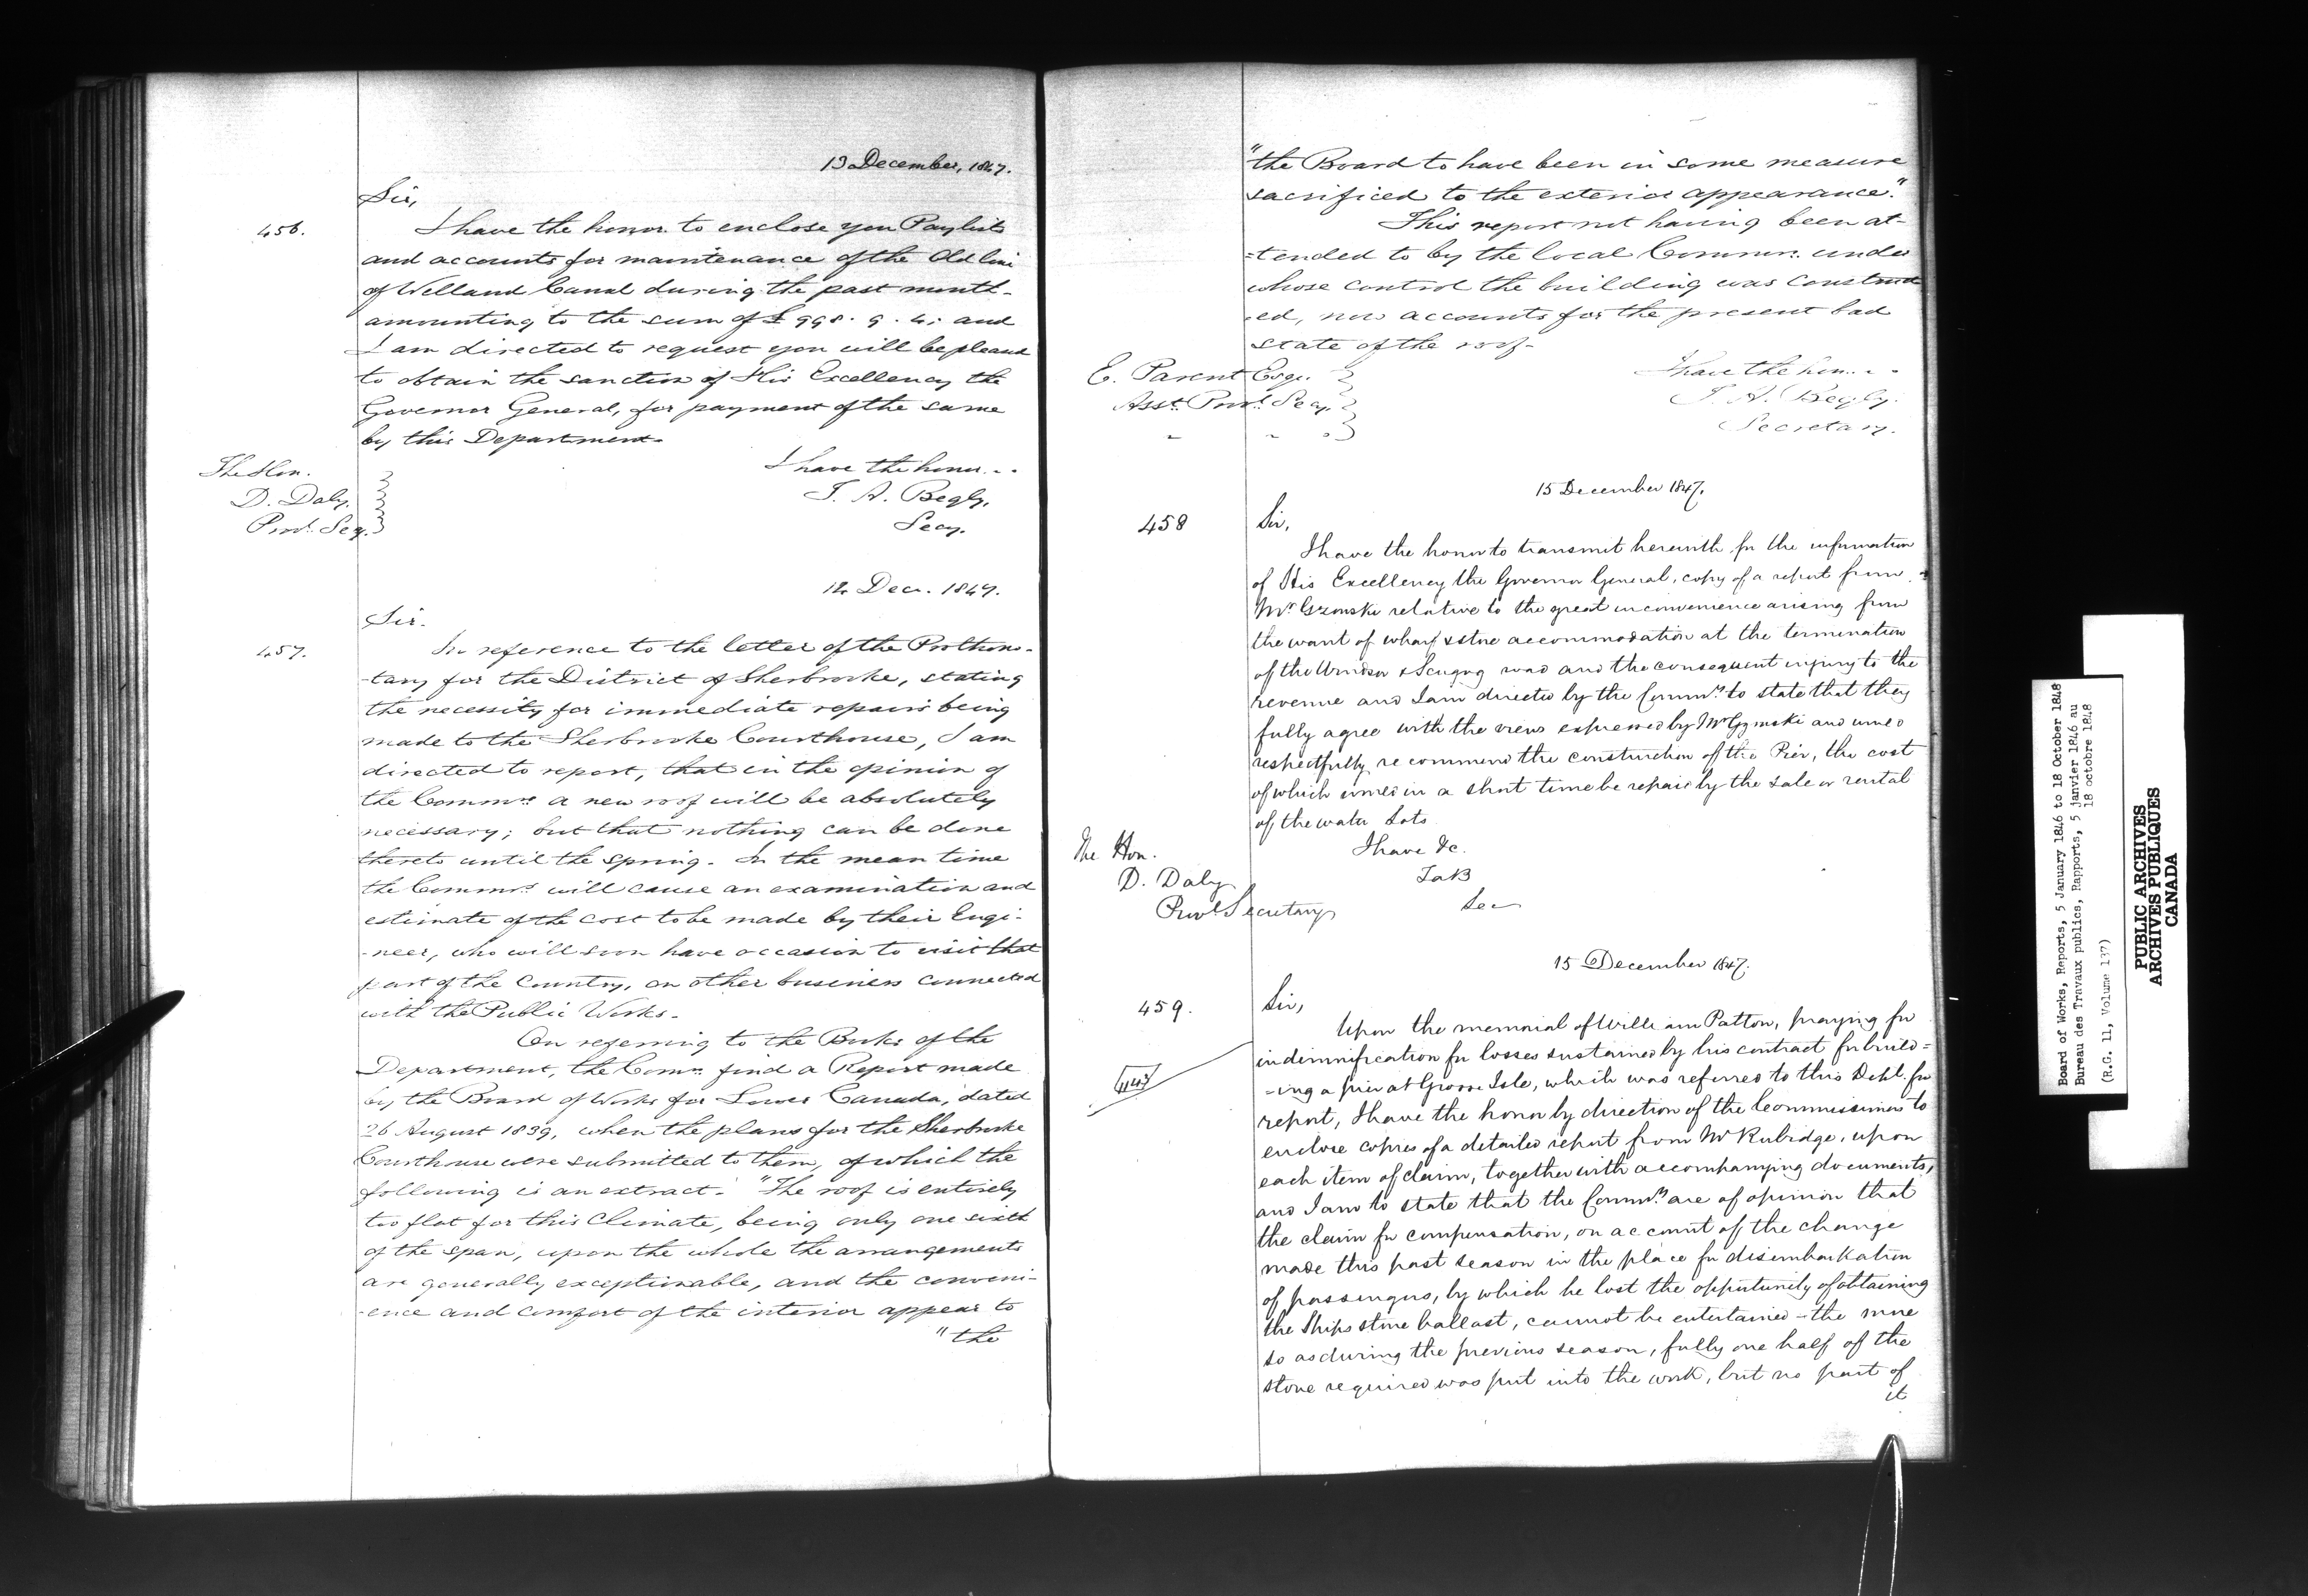 13 December, 1847.
Sir,
456.
I have the honor to enclose you Paylists
and accounts for maintenance of the Old line
of Welland Canal during the past month-
amounting to the sum of £998. 9. 4; and
I am directed to request you will be pleased
to obtain the sanction of His Excellency the
Governor General, for payment of the same
by this Department.
I have the honor...
T. A. Begly,
Secy.
The Hon.
D. Daly,
Provl. Secy.
14 Decr. 1847.
Sir.
457.
In reference to the letter of the Prothono-
-tary for the District of Sherbrooke, stating
the necessity for immediate repairs being
made to the Sherbrooke Courthouse, I am
directed to report, that in the opinion of
the Commrs. a new roof will be absolutely
necessary; but that nothing can be done
thereto until the spring. In the mean time
the Commrs. will cause an examination and
estimate of the cost to be made by their Engi-
-neer, who will soon have occasion to visit that
part of the Country, on other business connected
with the Public Works.
On referring to the Books of the
Department, the Comrs. find a Report made
by the Board of Works for Lower Canada, dated
26 August 1839, when the plans for the Sherbrooke
Courthouse were submitted to them, of which the
following is an extract. "The roof is entirely
too flat for this Climate, being only one sixth
of the span, upon the whole the arrangements
are generally exceptionable, and the conveni-
-ence and comfort of the interior appear to
"the
"the Board to have been in some measure
sacrificed to the exterior appearance."
This report not having been at-
=tended to by the local Commrs. under
whose control the building was construct
ed, now accounts for the present bad
state of the roof-
I have the hon...
T. A. Begly.
Secretary.
E. Parent Esqr.
Asst. Provl. Secy.
15 December 1847.
458
Sir,
I have the honor to transmit herewith for the information
of His Excellency the Governor General, copy of a report from
Mr Gzowski relative to the great inconvenience arising from
the want of wharf & store accommodation at the termination
of the Windsor & Scugog road and the consequent injury to the
revenue and I am directed by the Commrs. to state that they
fully agree with the views expressed by Mr Gzowski and would
respectfully recommend the construction of the Pier, the cost
of which would in a short time be repaid by the sale or rental
of the water Lots
I have &c.
TaB
Sec
The Hon.
D. Daly
Provl Secretary
15 December 1847.
459.
Sir,
Upon the memorial of William Patton, praying for
indimnification for losses sustained by his contract for build=
-ing a pier at Grosse Isle, which was referred to this Dept. for
report, I have the honor by direction of the Commissioners to
enclose copies of a detailed report from Mr Rubidge, upon
each item of claim, together with accompanying documents,
and I am to state that the Commrs. are of opinion that
the claim for compensation, on account of the change
made this past season in the place for disembarkation
of passengers, by which he lost the opportunity of obtaining
the Ships stone ballast, cannot be entertained - the more
so as during the previous season, fully one half of the
stone required was put into the work, but no part of
it
Board of Works, Reports, 5 January 1846 to 18 October 1848
Bureau des Travaux publics, Rapports, 5 janvier 1846 au
18 octobre 1848
(R.G. 11, Volume 137)
PUBLIC ARCHIVES
ARCHIVES PUBLIQUES
CANADA